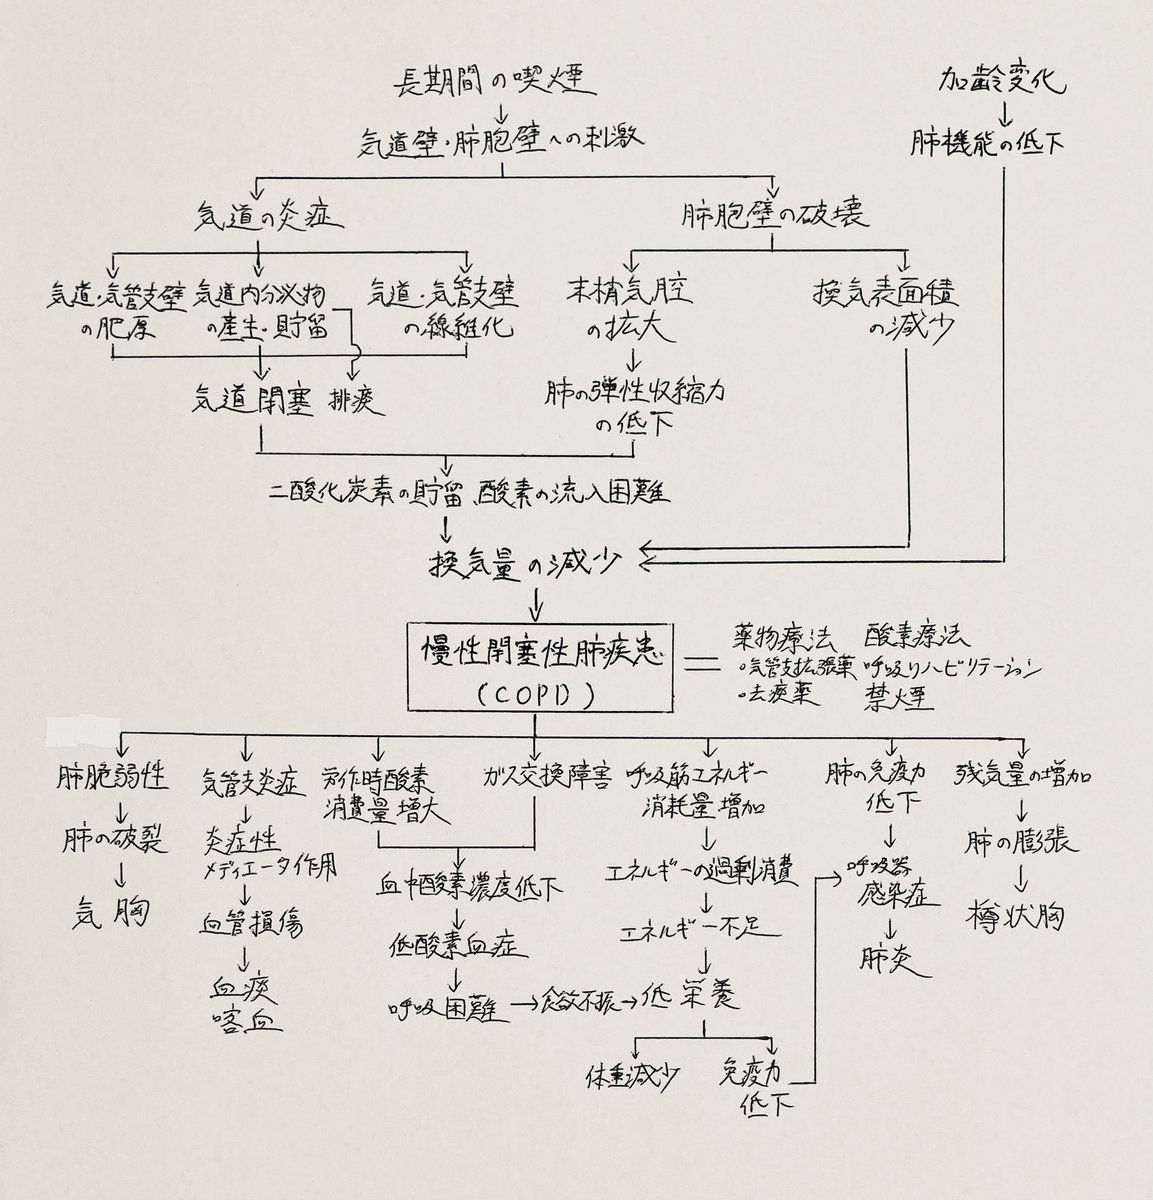 長期間の喫煙
加齢変化
気道壁・肺胞壁への刺激
肺機能の低下
気道の炎症
肺胞壁の破壊
気道・気管支壁
の肥厚
気道内分泌物
の産生・貯留
気道・気管支壁
の線維化
末梢気腔
の拡大
換気表面積
の減少
気道閉塞
排痰
肺の弾性収縮力
の低下
二酸化炭素の貯留、酸素の流入困難
換気量の減少
慢性閉塞性肺疾患
(COPD)
薬物療法
・気管支拡張薬
・去痰薬
酸素療法
呼吸リハビリテーション
禁煙
肺脆弱性
肺の破裂
気胸
気管支炎症
炎症性
メディエータ作用
血管損傷
血痰
喀血
労作時酸素
消費量増大
ガス交換障害
血中酸素濃度低下
低酸素血症
呼吸困難
食欲不振
呼吸筋エネルギー
消耗量増加
エネルギーの過剰消費
エネルギー不足
低栄養
体重減少
免疫力
低下
肺の免疫力
低下
呼吸器
感染症
肺炎
残気量の増加
肺の膨張
樽状胸